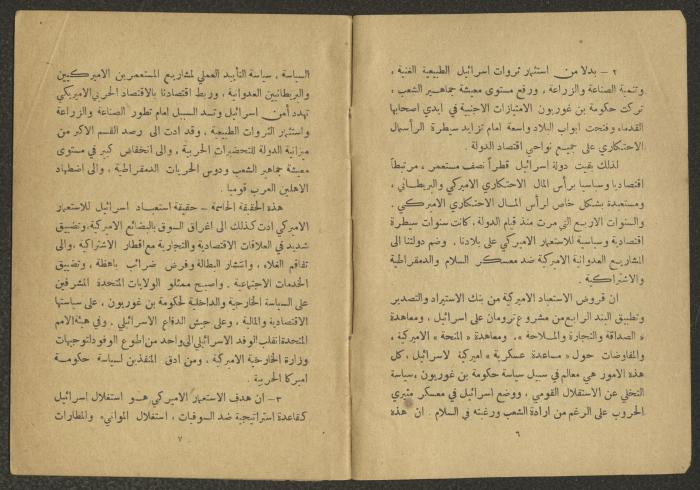 ٢ - بدلا من استثمار ثروات اسرائيل الطبيعية الغنية ،
وتنمية الصناعة والزراعة ، ورفع مستوى معيشة جماهير الشعب ،
تركت حكومة بن غوريون الامتيازات الاجنبية في ايدي اصحابها
القدماء وفتحت ابواب البلاد واسعة امام تزايد سيطرة الرأسمال
الاحتكاري على جميع نواحي اقتصاد الدولة .
لذلك بقيت دولة اسرائيل قطراً نصف مستعمر ، مرتبطاً
اقتصاديا وسياسيا برأس المال الاحتكاري الاميركي والبريطاني ،
ومستعبدة بشكل خاص لرأس المال الاحتكاري الاميركي .
والسنوات الاربع التي مرت منذ قيام الدولة، كانت سنوات سيطرة
اقتصادية وسياسية للاستعمار الاميركي على بلادنا ، وضم دولتنا الى
المشاريع العدوانية الاميركية ضد معسكر السلام والدمقراطية
والاشتراكية .
ان قروض الاستعباد الاميركية من بنك الاستيراد والتصدير
وتطبيق البند الرابع من مشروع ترومان على اسرائيل ، ومعاهدة
« الصداقة والتجارة والملاحة »، ومعاهدة « المنحة » الاميركية ،
والمفاوضات حول « مساعدة عسكرية » اميركية لاسرائيل ، كل
هذه الامور هي معالم في سبيل سياسة حكومة بن غوريون ، سياسة
التخلي عن الاستقلال القومي ، ووضع اسرائيل في معسكر مثيري
الحروب على الرغم من ارادة الشعب ورغبته في السلام . ان هذه
٦
السياسة ، سياسة التأييد العملي لمشاريع المستعمرين الاميركيين
والبريطانيين العدوانية ، وربط اقتصادنا بالاقتصاد الحربي الاميركي
تهدد أمن اسرائيل وتسد السبيل امام تطور الصناعة والزراعة
واستثمار الثروات الطبيعية ، وقد ادت الى رصد القسم الاكبر من
ميزانية الدولة للتحضيرات الحربية ، والى انخفاض كبير في مستوى
معيشة جماهير الشعب ودوس الحريات الدمقراطية ، والى اضطهاد
الاهلين العرب قوميا .
هذه الحقيقة الحاسمة - حقيقة استعباد اسرائيل للاستعمار
الاميركي ادت كذلك الى اغراق السوق بالبضائع الاميركية، وتضييق
شديد في العلاقات الاقتصادية والتجارية مع اقطار الاشتراكية ، والى
تفاقم الغلاء ، وانتشار البطالة وفرض ضرائب باهظة ، وتضييق
الخدمات الاجتماعية . واصبح ممثلو الولايات المتحدة المشرفين
على السياسة الخارجية والداخلية لحكومة بن غوريون ، على سياستها
الاقتصادية والمالية ، وعلى جيش الدفاع الاسرائيلي . وفي هيئة الامم
المتحدة انقلب الوفد الاسرائيلي الى واحد من اطوع الوفود لتوجيهات
وزارة الخارجية الاميركية ، ومن ادق المنفذين لسياسة حكومة
اميركا الحربية .
٣ - ان هدف الاستعمار الاميركي هو استغلال اسرائيل
كقاعدة استراتيجية ضد السوفيات ، استغلال الموانيء والمطارات
٧